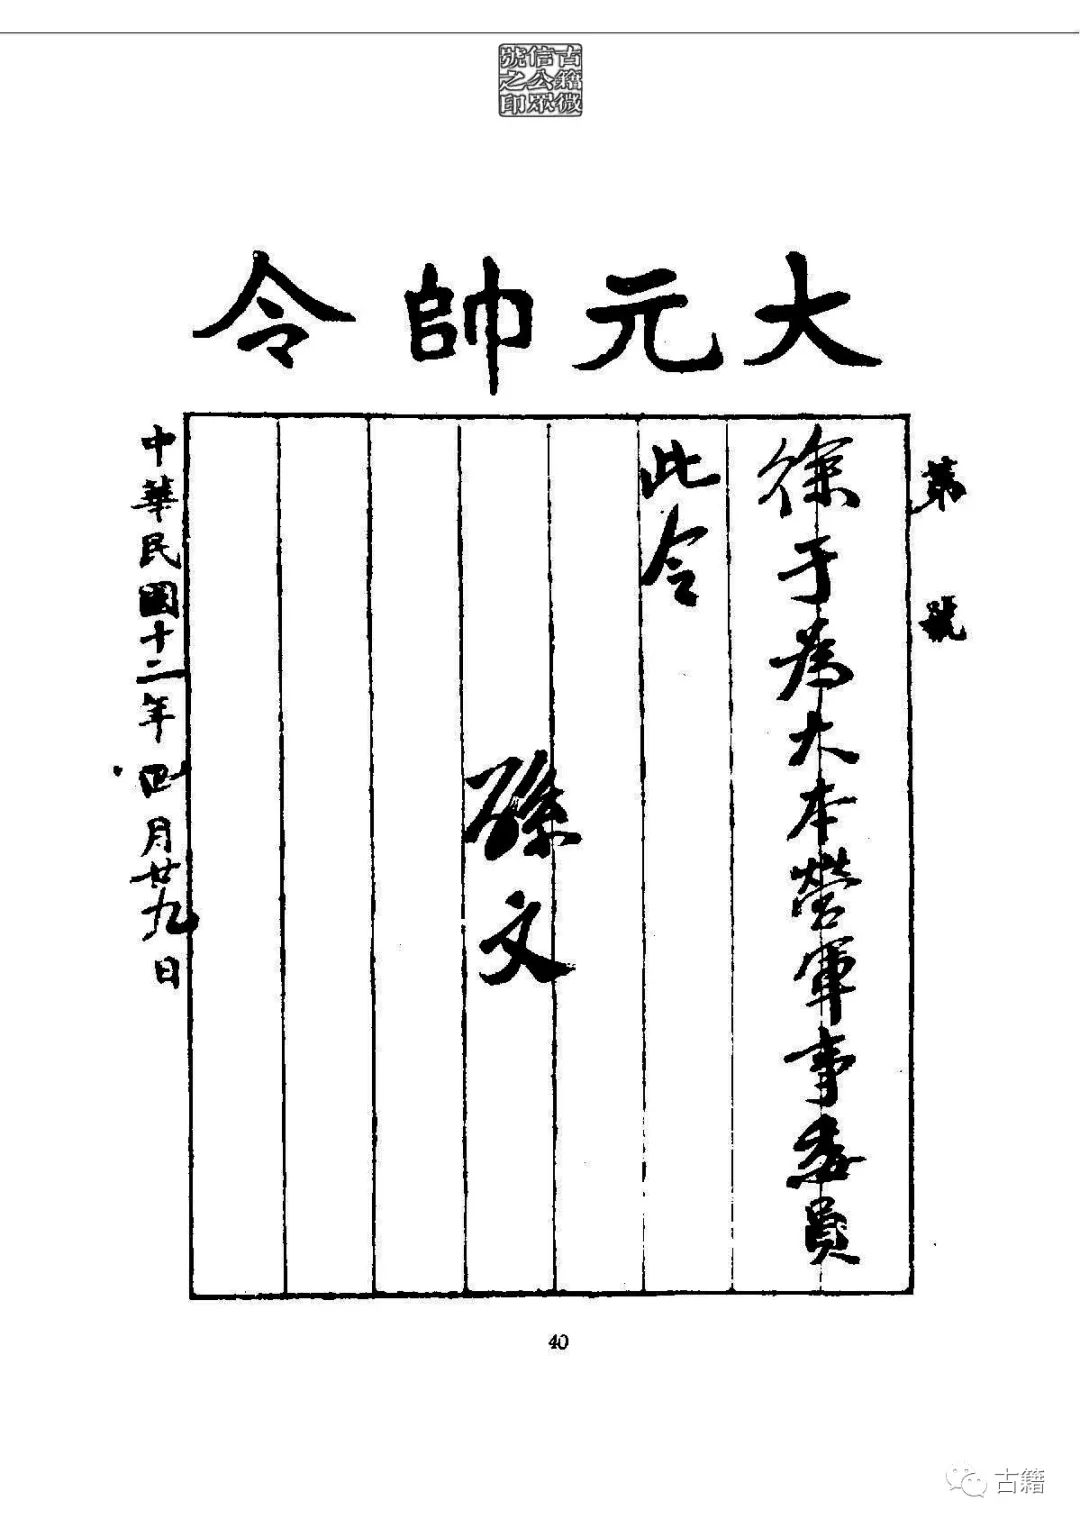 古籍微
信公眾
號之印
大元帥令
第　號
徐于為大本營軍事委員
此令
孫文
中華民國十二年四月廿九日
40
古籍